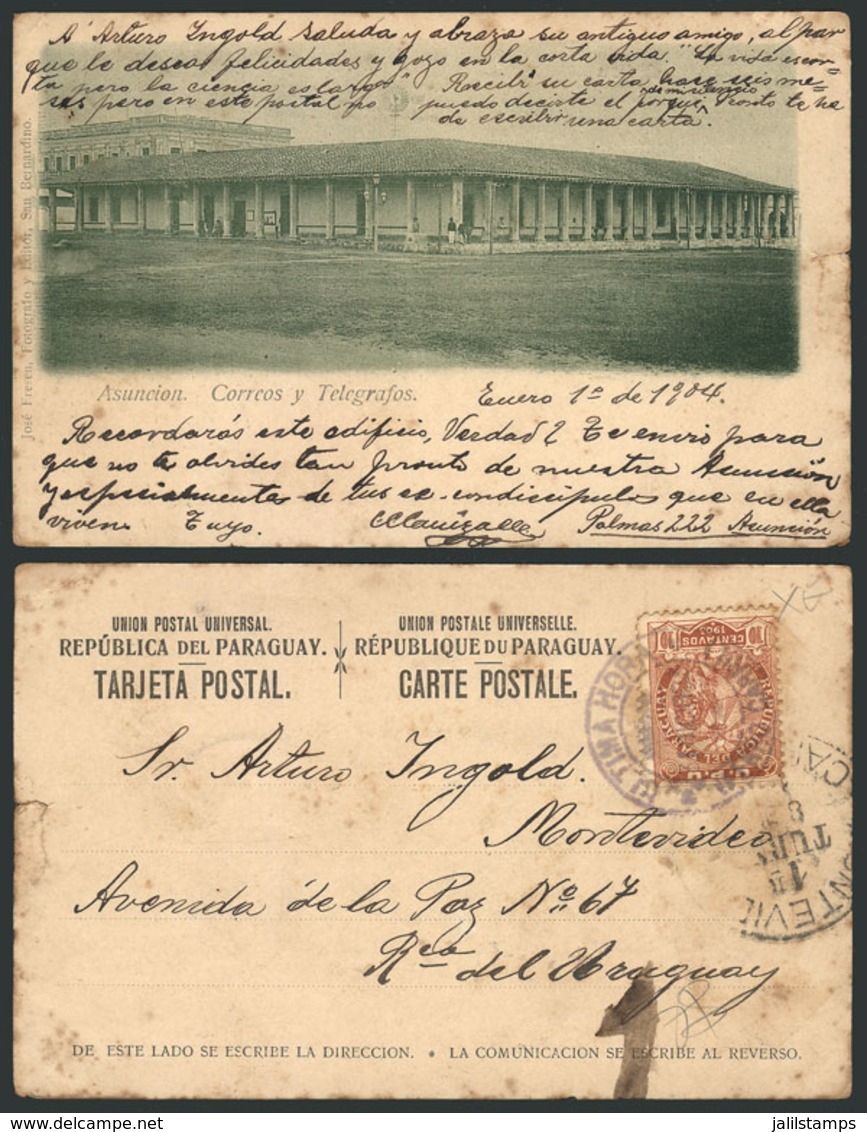 A' Arturo Ingold saluda y abraza su antiguo amigo, al par
que le desea felicidades y gozo en la corta vida. "La vida es cor-
ta pero la ciencia es larga" Recibí su carta hace seis me-
ses pero en este postal no puedo decirte el porqué de mi silencio, Pronto te ha
de escribir una carta.
José Fresen, Fotógrafo y Editor, San Bernardino.
Asuncion. Correos y Telegrafos.
Enero 1º de 1904.
Recordarás este edificio, Verdad? Te envio para
que no te olvides tan pronto de nuestra Asunción
y especialmente de tus ex-condiscipulos que en ella
viven. Tuyo. Palmas 222 Asunción
UNION POSTAL UNIVERSAL.
REPÚBLICA DEL PARAGUAY.
TARJETA POSTAL.
UNION POSTALE UNIVERSELLE.
RÉPUBLIQUE DU PARAGUAY.
CARTE POSTALE.
10 CENTAVOS 10
1903
REPUBLICA DEL PARAGUAY
U.P.U.
ULTIMA HORA
MONTEVID
Sr. Arturo Ingold.
Montevideo
Avenida de la Paz Nº 67
Rca del Uruguay
1
DE ESTE LADO SE ESCRIBE LA DIRECCION. • LA COMUNICACION SE ESCRIBE AL REVERSO.
www.delcampe.net
jalilstamps